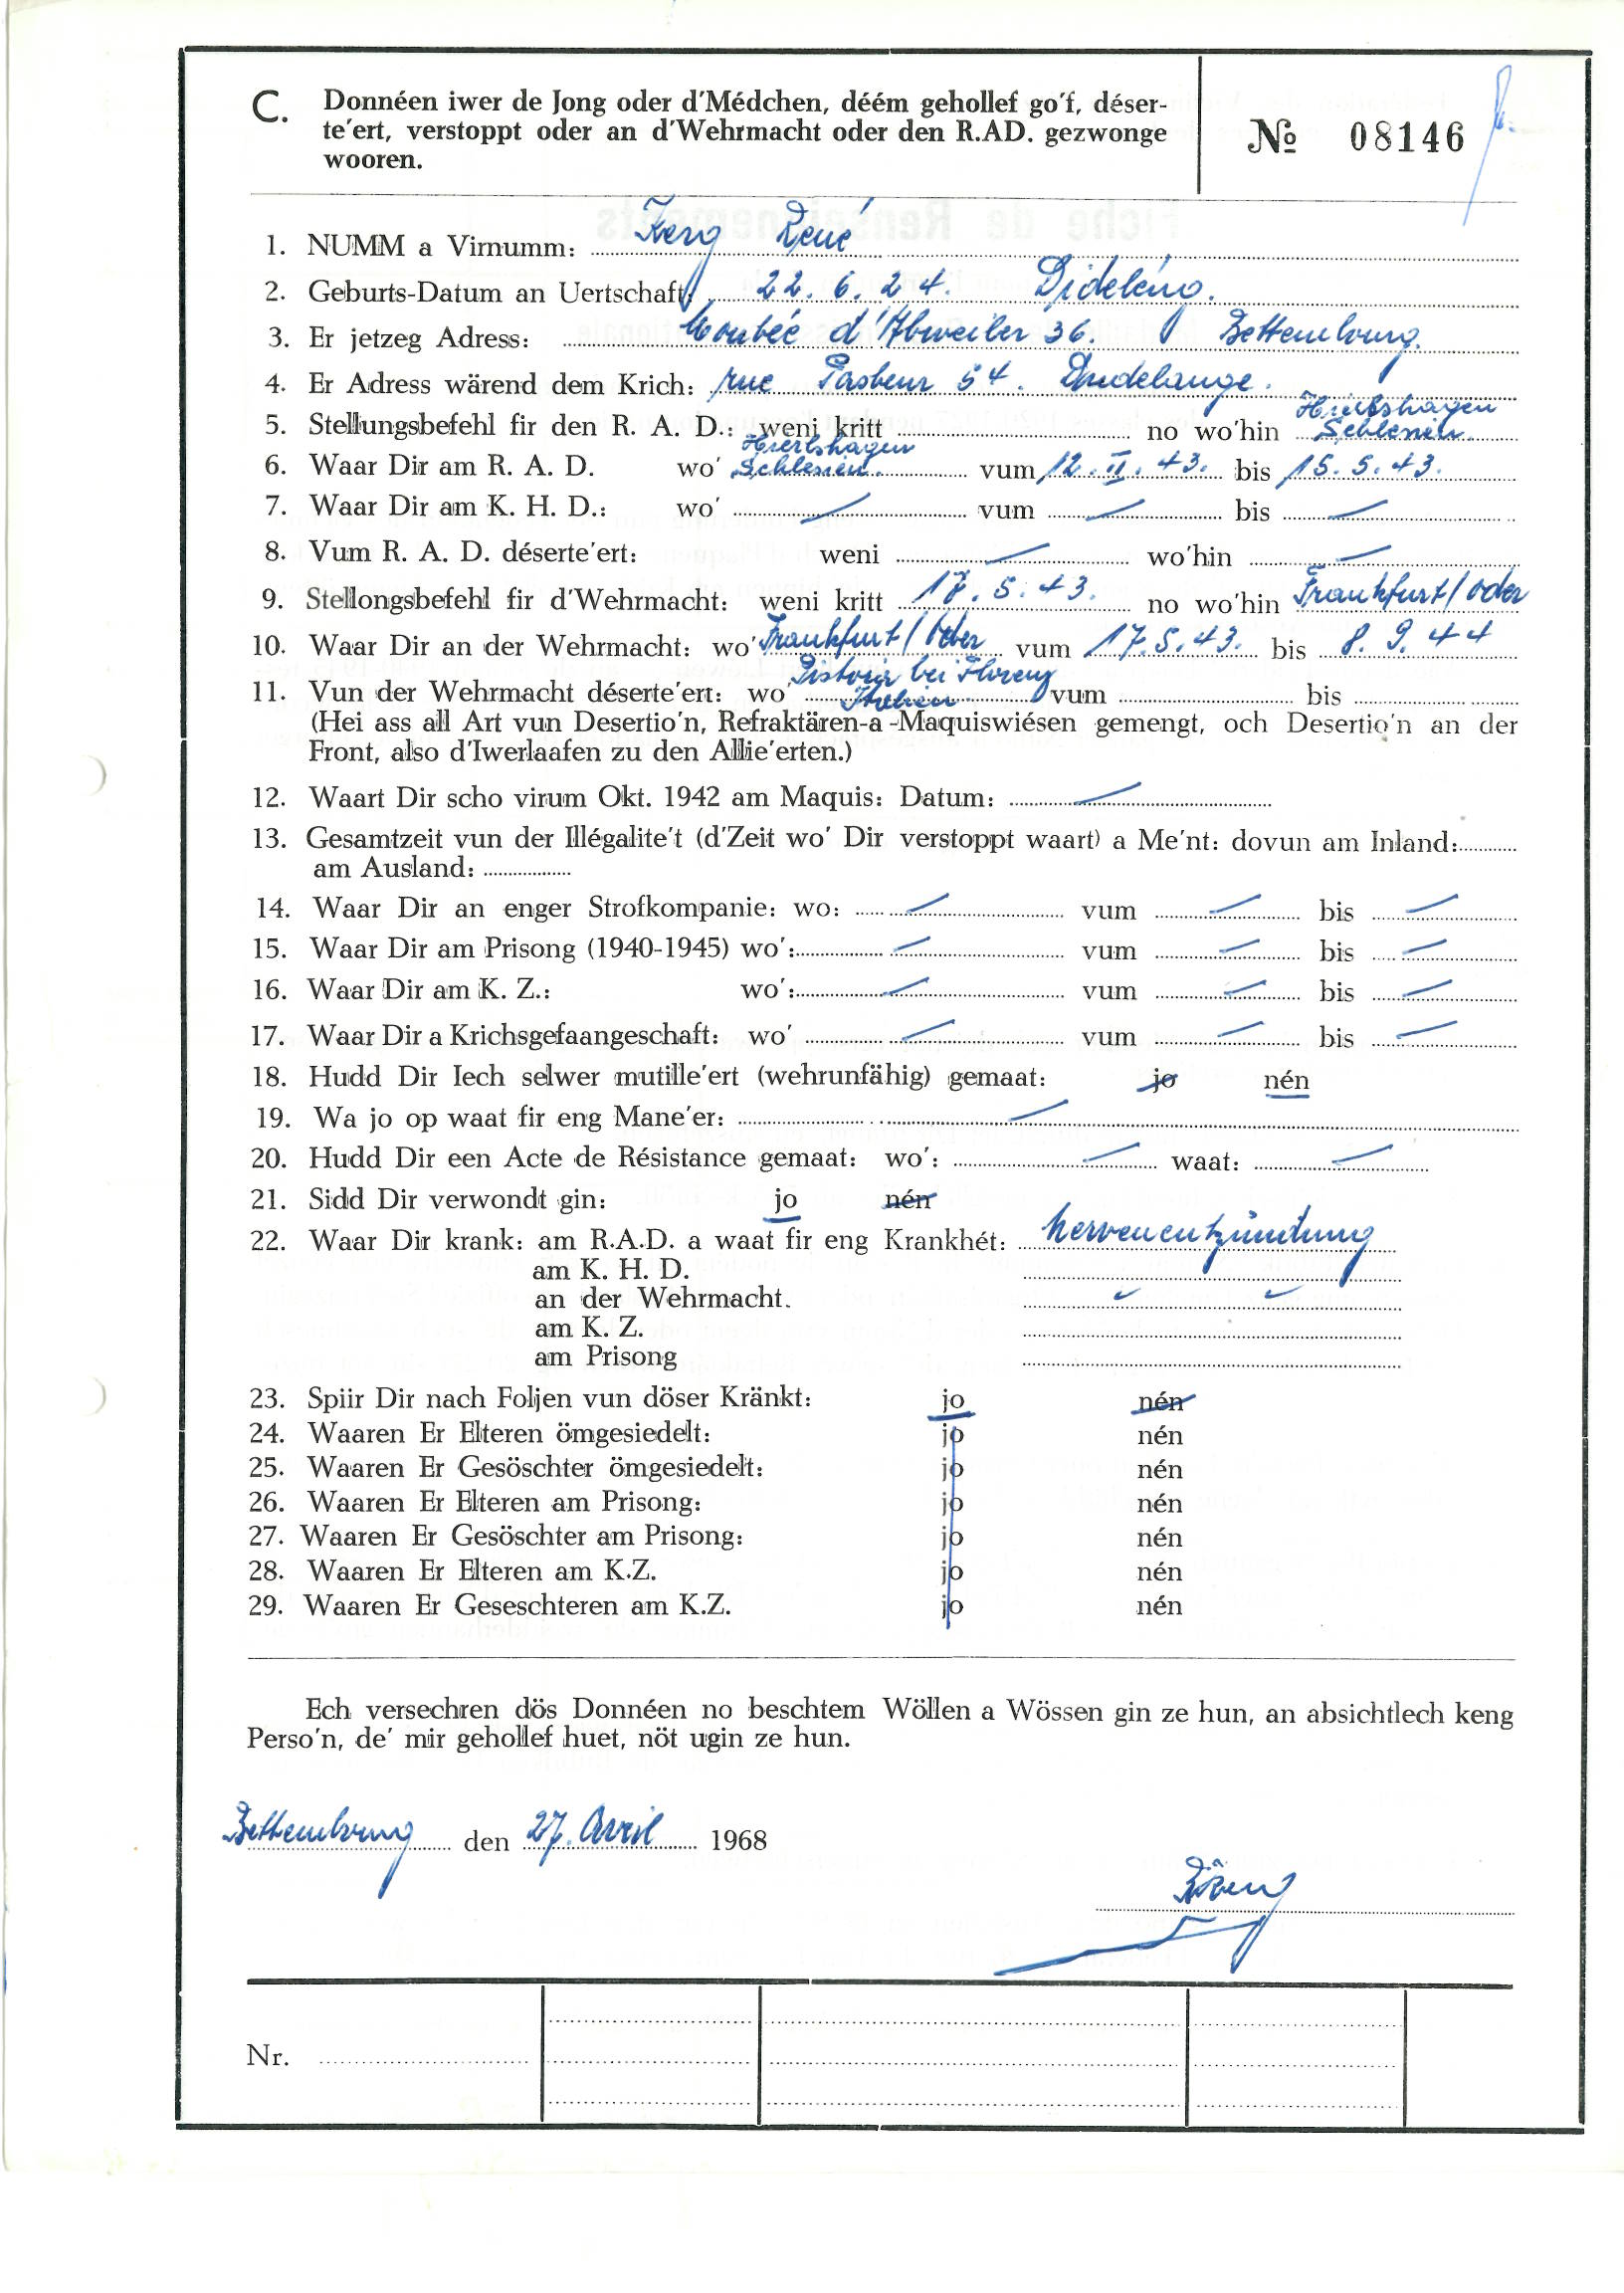 C. Donnéen iwer de Jong oder d'Médchen, déém gehollef go'f, déser-
te'ert, verstoppt oder an d'Wehrmacht oder den R.AD. gezwonge
wooren.
№ 08146
1. NUMM a Virnumm: Kerg René
2. Geburts-Datum an Uertschaft: 22. 6. 24. Dideléng.
3. Er jetzeg Adress: Montée d'Abweiler 36. Bettembourg.
4. Er Adress wärend dem Krich: rue Pasteur 54. Dudelange.
5. Stellungsbefehl fir den R. A. D.: weni kritt no wo'hin Schlesien.
6. Waar Dir am R. A. D. wo' Schlesien. vum 12. II. 43. bis 15. 5. 43.
7. Waar Dir am K. H. D.: wo' — vum — bis —
8. Vum R. A. D. déserte'ert: weni — wo'hin —
9. Stellongsbefehl fir d'Wehrmacht: weni kritt 17. 5. 43. no wo'hin Frankfurt/Oder
10. Waar Dir an der Wehrmacht: wo' Frankfurt/Oder vum 17. 5. 43. bis 8. 9. 44
11. Vun der Wehrmacht déserte'ert: wo' Pistoia bei Florenz Italien vum bis
(Hei ass all Art vun Desertio'n, Refraktären-a-Maquiswiésen gemengt, och Desertio'n an der
Front, also d'Iwerlaafen zu den Allie'erten.)
12. Waart Dir scho virum Okt. 1942 am Maquis: Datum: —
13. Gesamtzeit vun der Illégalite't (d'Zeit wo' Dir verstoppt waart) a Me'nt: dovun am Inland:
am Ausland:
14. Waar Dir an enger Strofkompanie: wo: — vum — bis —
15. Waar Dir am Prisong (1940-1945) wo': — vum — bis —
16. Waar Dir am K. Z.: wo': — vum — bis —
17. Waar Dir a Krichsgefaangeschaft: wo' — vum — bis —
18. Hudd Dir Iech selwer mutille'ert (wehrunfähig) gemaat: jo nén
19. Wa jo op waat fir eng Mane'er: —
20. Hudd Dir een Acte de Résistance gemaat: wo': — waat: —
21. Sidd Dir verwondt gin: jo nén
22. Waar Dir krank: am R.A.D. a waat fir eng Krankhét: Nervenentzündung
am K. H. D.
an der Wehrmacht.
am K. Z.
am Prisong
23. Spiir Dir nach Foljen vun döser Kränkt: jo nén
24. Waaren Er Elteren ömgesiedelt: jo nén
25. Waaren Er Gesöschter ömgesiedelt: jo nén
26. Waaren Er Elteren am Prisong: jo nén
27. Waaren Er Gesöschter am Prisong: jo nén
28. Waaren Er Elteren am K.Z. jo nén
29. Waaren Er Geseschteren am K.Z. jo nén
Ech versechren dös Donnéen no beschtem Wöllen a Wössen gin ze hun, an absichtlech keng
Perso'n, de' mir gehollef huet, nöt ugin ze hun.
Bettembourg den 27. Avril 1968
Nr.